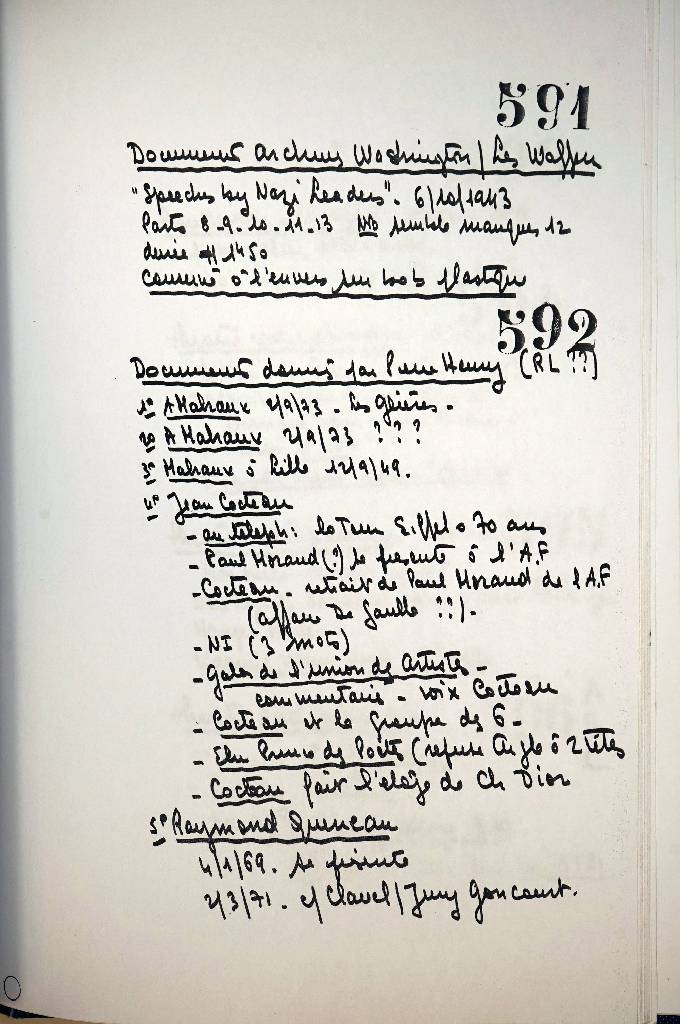 591
Document Archives Washington / Les Waffen
"Speeches by Nazi Leaders". 6/10/1943
Parts 8.9.10.11.13 NB semble manquer 12
durée # 1450
Conservé à l'envers sur bob plastique
592
Documents donnés par Pierre Henry (RL ??)
1° A Malraux 2/9/73 - Les Glières -
2° A Malraux 2/9/73 ???
3° Malraux à Lille 12/9/49.
4° Jean Cocteau
- au téleph: la Tour Eiffel a 70 ans
- Paul Morand (?) se présente à l'A.F
- Cocteau - retrait de Paul Morand de l'A.F
(affaire De Gaulle ??).
- NI (3 mots)
- Gala de l'union des Artistes -
commentaire - voix Cocteau
- Cocteau et le groupe des 6 -
- Elu Prince des Poètes (refuse Aigle à 2 Têtes
- Cocteau fait l'éloge de Ch Dior
5° Raymond Queneau
4/1/69. se présente
2/3/71. c/ Clavel / Jury Goncourt.